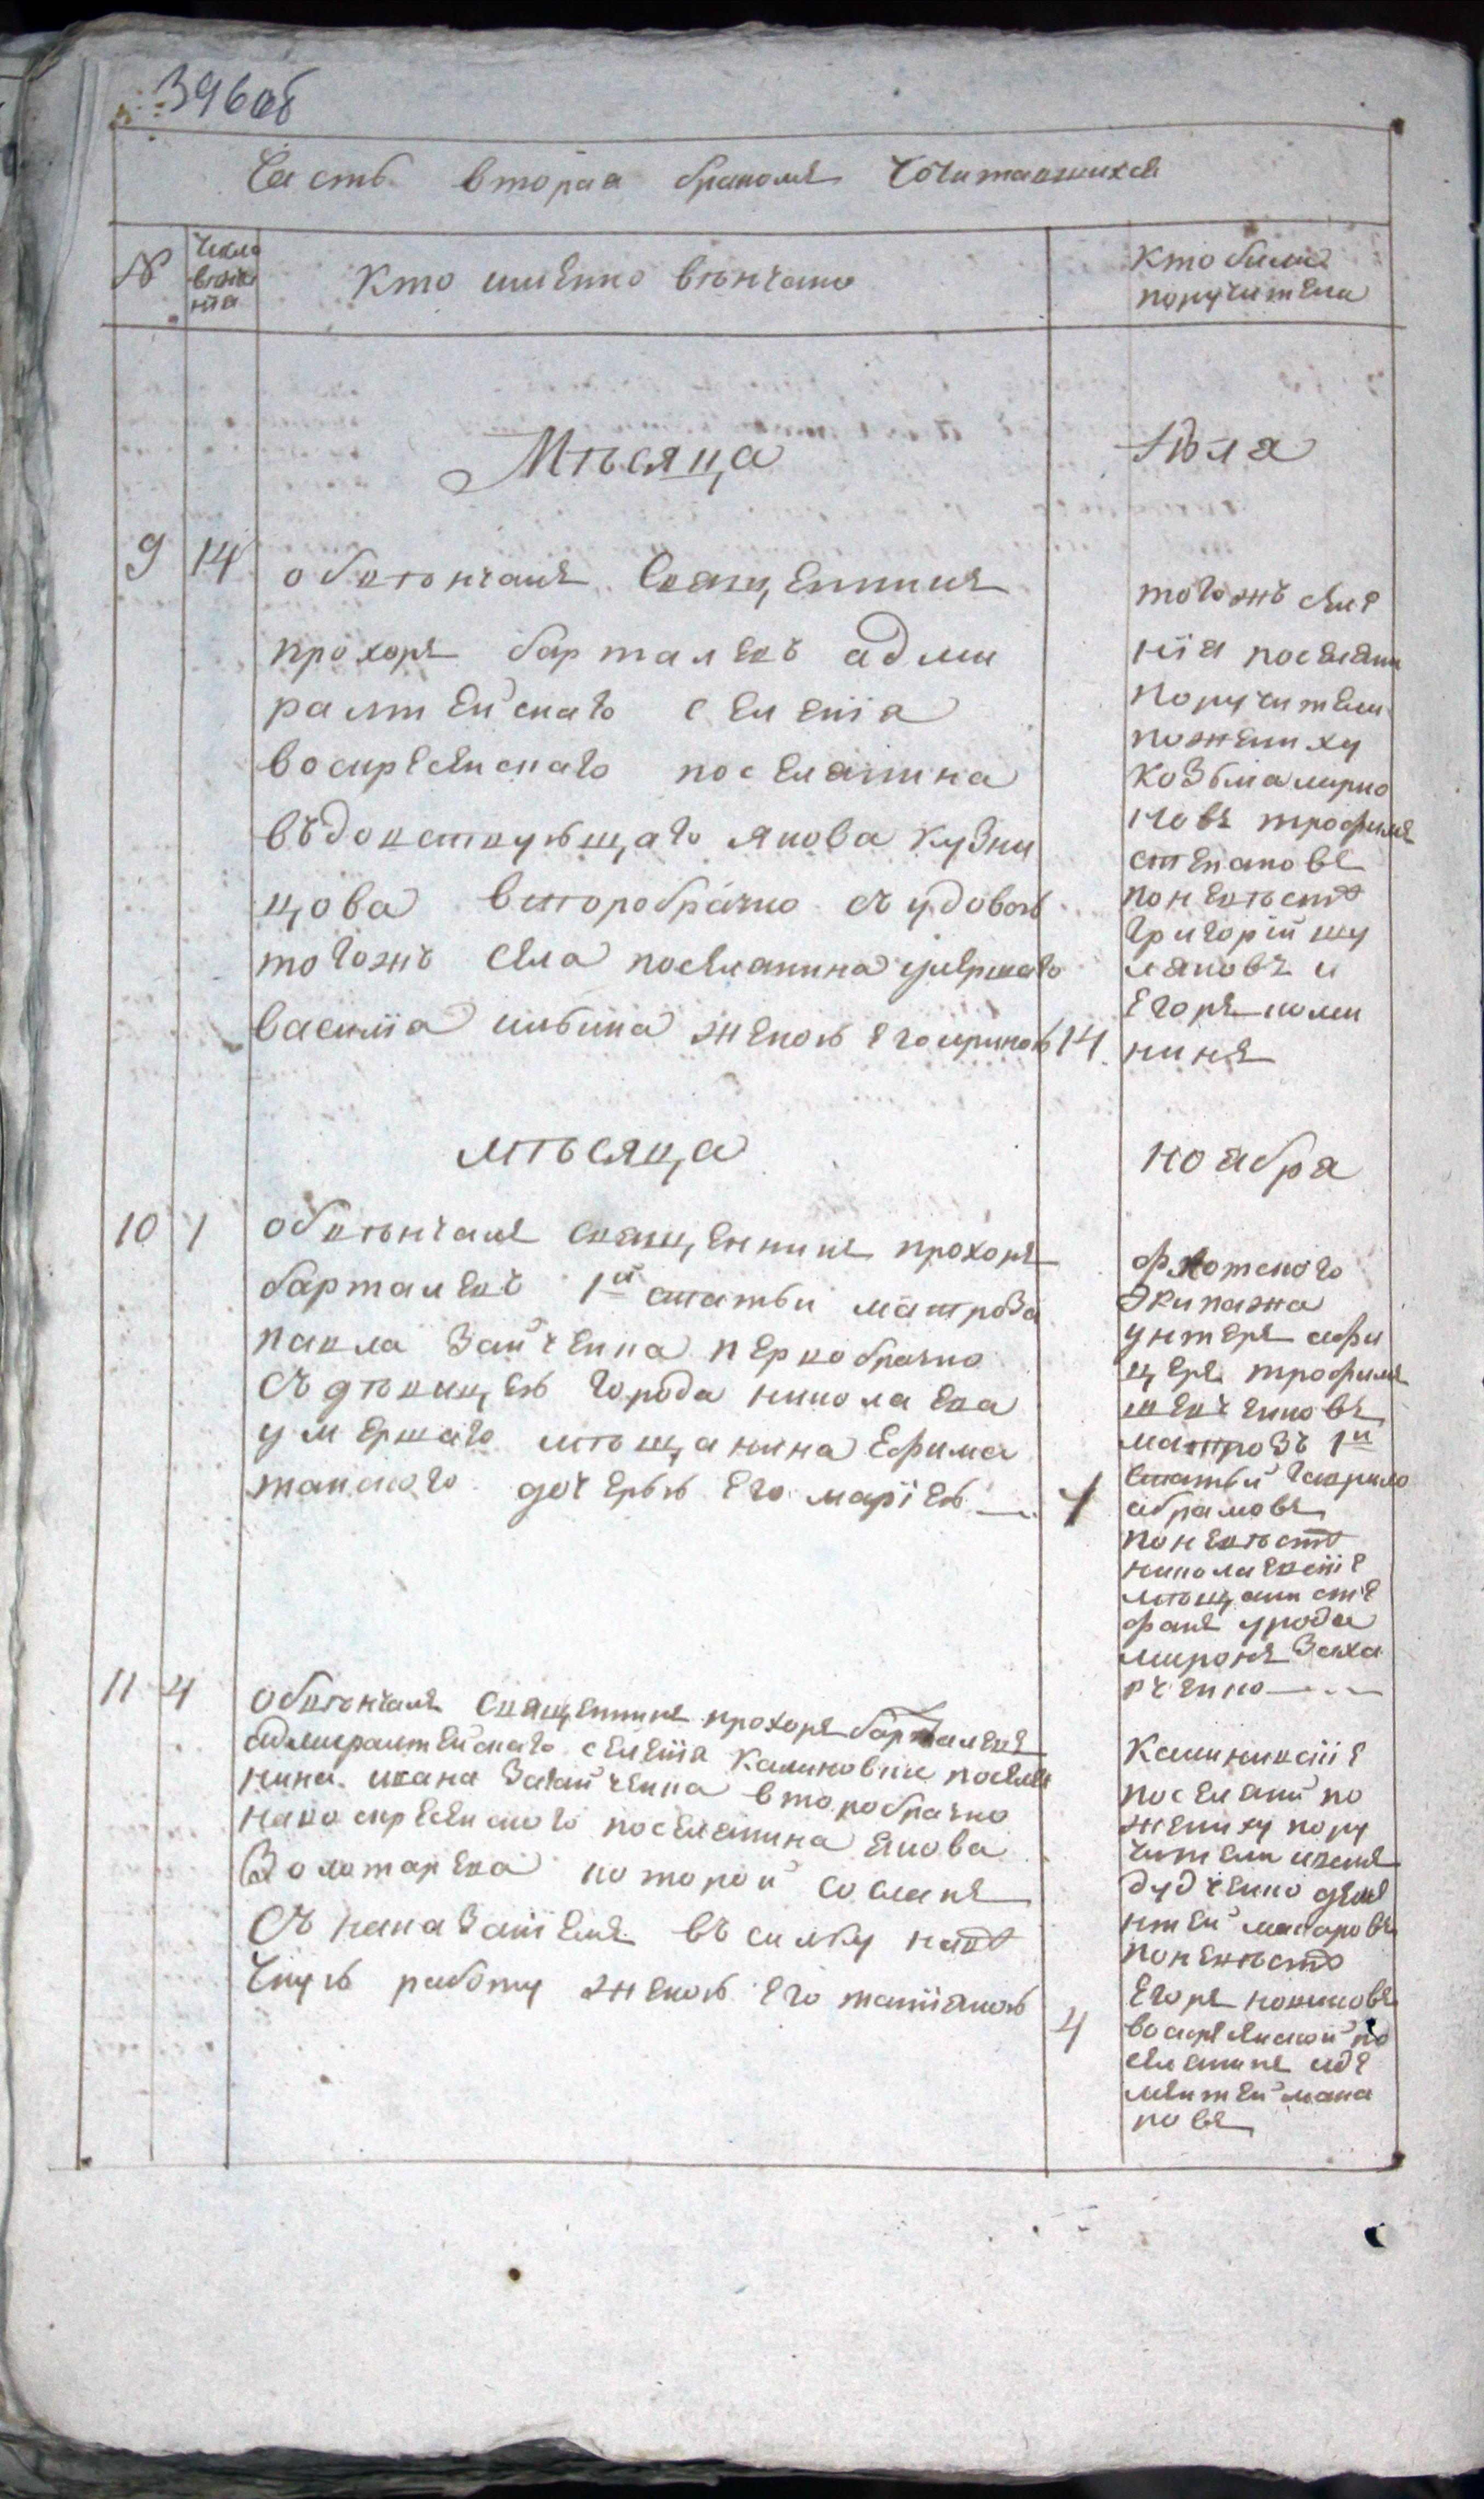 396об
Часть вторая бракомъ сочитавшихся
№
числа
венче
нїя
Кто имѣнно вѣнчано
Кто были
поручители
Мѣсяца
Іюля
9 14
обвѣнчалъ Священникъ
прохоръ барталевъ адми
ралтейскаго селенїя
воскресенскаго поселянина
въдовствующаго якова Кузни
цова второбрачно съ удовою
тогожъ села поселянина умершаго
василїя ильина женою его ириною 14
тогожъ селе
нїя поселяни
поручители
по жениху
Козьма миро
новъ трофимъ
степановъ
по невѣсте
григорїй шу
ляковъ и
Егоръ коми
нинъ
мѣсяца
ноября
10 1
обвѣнчалъ священникъ прохоръ
барталевъ 1й статьи матроза
павла Зайченка первобрачно
съ дѣвицею города николаева
умершаго мѣщанина Ефима
танского дочерью его марїею 1
флотского
Экипажа
унтеръ афи
церъ трофимъ
шевченковъ
матрозъ 1й
Статьи гаврило
абрамовъ
по невѣсте
николаевскїе
мѣщани сте
фанъ урода
миронъ Заха
рченко
11 4
обвѣнчалъ священникъ прохоръ барталевъ
адмиралтейскаго селенїя Калиновки поселя
нина ивана Загайченка второбрачно
на воскресенского поселянина якова
Золотарева которой сосланъ
Съ наказанїемъ въ силку на
женою его татїяною 4
Калиновскїе
поселяни по
жениху пору
чители иванъ
дудченко деме
нтей макаровъ
по невѣсте
Егоръ новиковъ
воскресенской по
селянинъ аде
ментей мака
ровъ